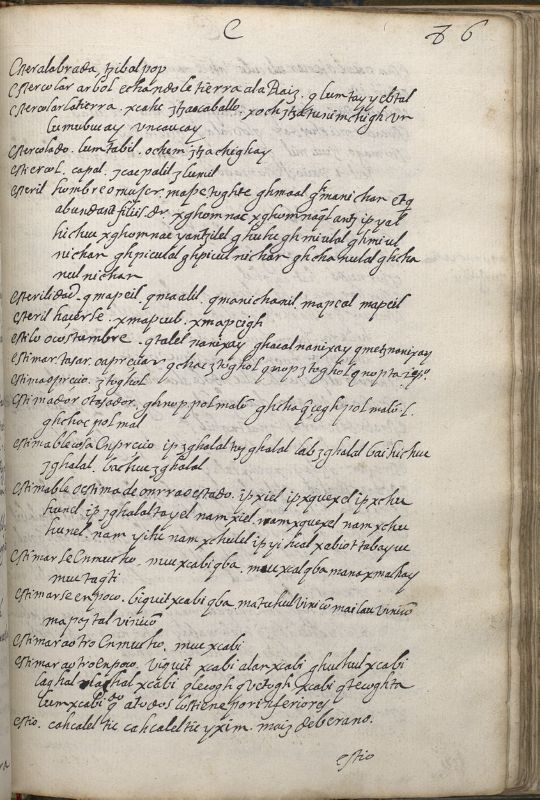 C 86
Esteralabrada, tzibal pop
Estercolar arbol echandole tierra ala Raiz. qlumtay y cbtal
Estercolar la tierra. xcahc ztzacaballo. xoch ztza tunimchigh vn
lumubucay vncaucay
Estercolado. lumtabil. ochem ztzachighay
Estiercol. capal. zcacpalil zlumil
Esteril hombre o muger. mapetoghte ghmaal qmanichan etq
abundant filijs. dr. xghomnac xghomnaql antz ip yal
hichuc xghomnac yantzilel ghuluc ghmiulal ghmiul
nichan ghpiculal ghpicul nichan ghchanulal ghcha
nul nichan
Esterilidad. qmapcil. qmaalil qmanichanil. mapcal mapcil
Esteril hazerse. xmapcub. xmapcigh
estilo o costumbre. qtalel nanixay ghacal nanixay qmetznanixay
estimar tasar. o apreciar qchac ztoghol qnop ztoghol qnopta
estima o precio. ztoghol
Estimador o tasador. ghnop pol malo. ghchaq cegh pol malo. l.
ghchoc pol mal
estimable cosa En precio ip zghalal toy ghalal lab zghalal bachichuc
zghalal. bachuc zghalal
Estimable o estima de onrra o estado. ip xiel ip xquexel ip xchu
hunel ip zghalaltayel nam xiel. nam xquexel nam xchu
hunel. nam yihc nam xchulel ip yihcal xebiot tabayuc
estimarse En mucho. muc xcabi qba. muc xcal qba mana xmachay
muc taqti
Estimarse en poco. biquit xcabi qba. matuhul vinico mailau vinico
mapoztal vinico
estimar a otro En mucho. muc xcabi
estimar a otro En poco. viquit xcabi alan xcabi ghuchul xcabi
laghal xcabi glecogh quctogh xcabi qtecoghta
lum xcabi qdo atodos los tiene por inferiores
estio. cahcaleltic cahcaleltic yxim. maiz de berano.
estio